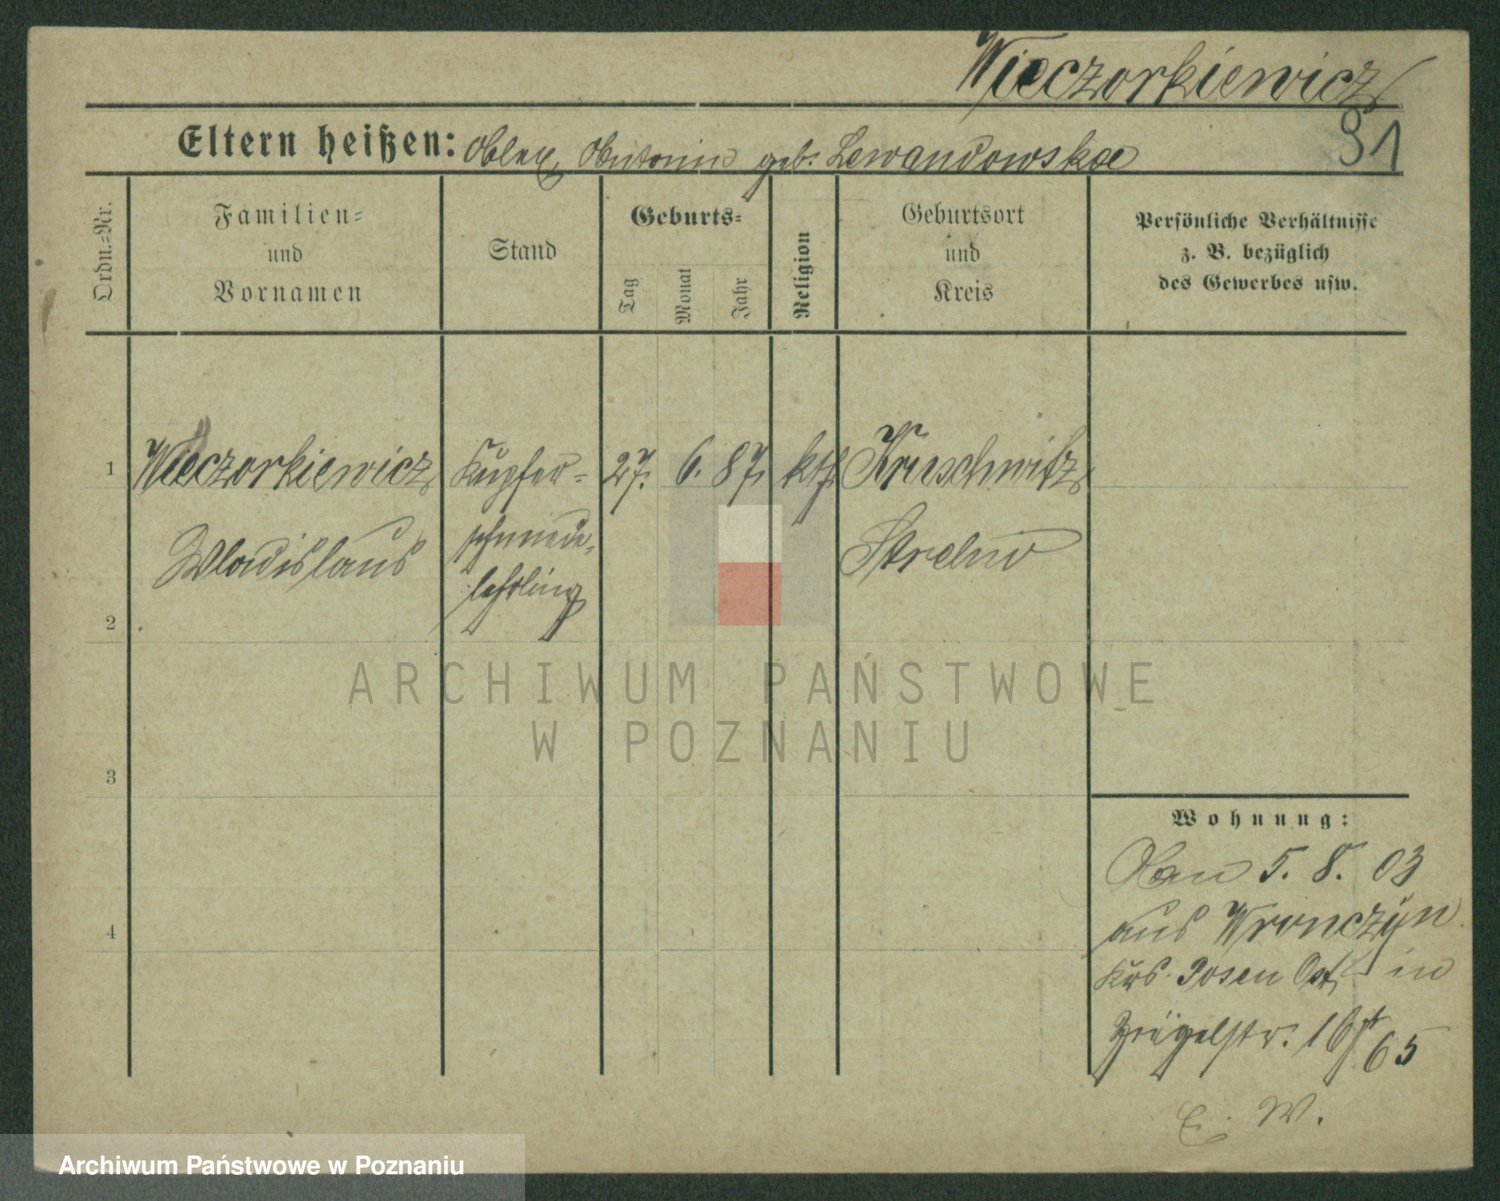 Wieczorkiewicz
91
Eltern heißen: Alex, Antonina geb. Lewandowska
Ordn.-Nr.
Familien-
und
Vornamen
Stand
Geburts-
Tag
Monat
Jahr
Religion
Geburtsort
und
Kreis
Persönliche Verhältnisse
z. B. bezüglich
des Gewerbes usw.
1 Wieczorkiewicz Kupfer- 27. 6. 87. kth Kruschwitz
Wladislaus schmiede- Strelno
lehrling
2
3
4
Wohnung:
5. 8. 03
aus Wronczyn
Krs. Posen Ost, in
65
E. W.
ARCHIWUM PAŃSTWOWE
W POZNANIU
Archiwum Państwowe w Poznaniu